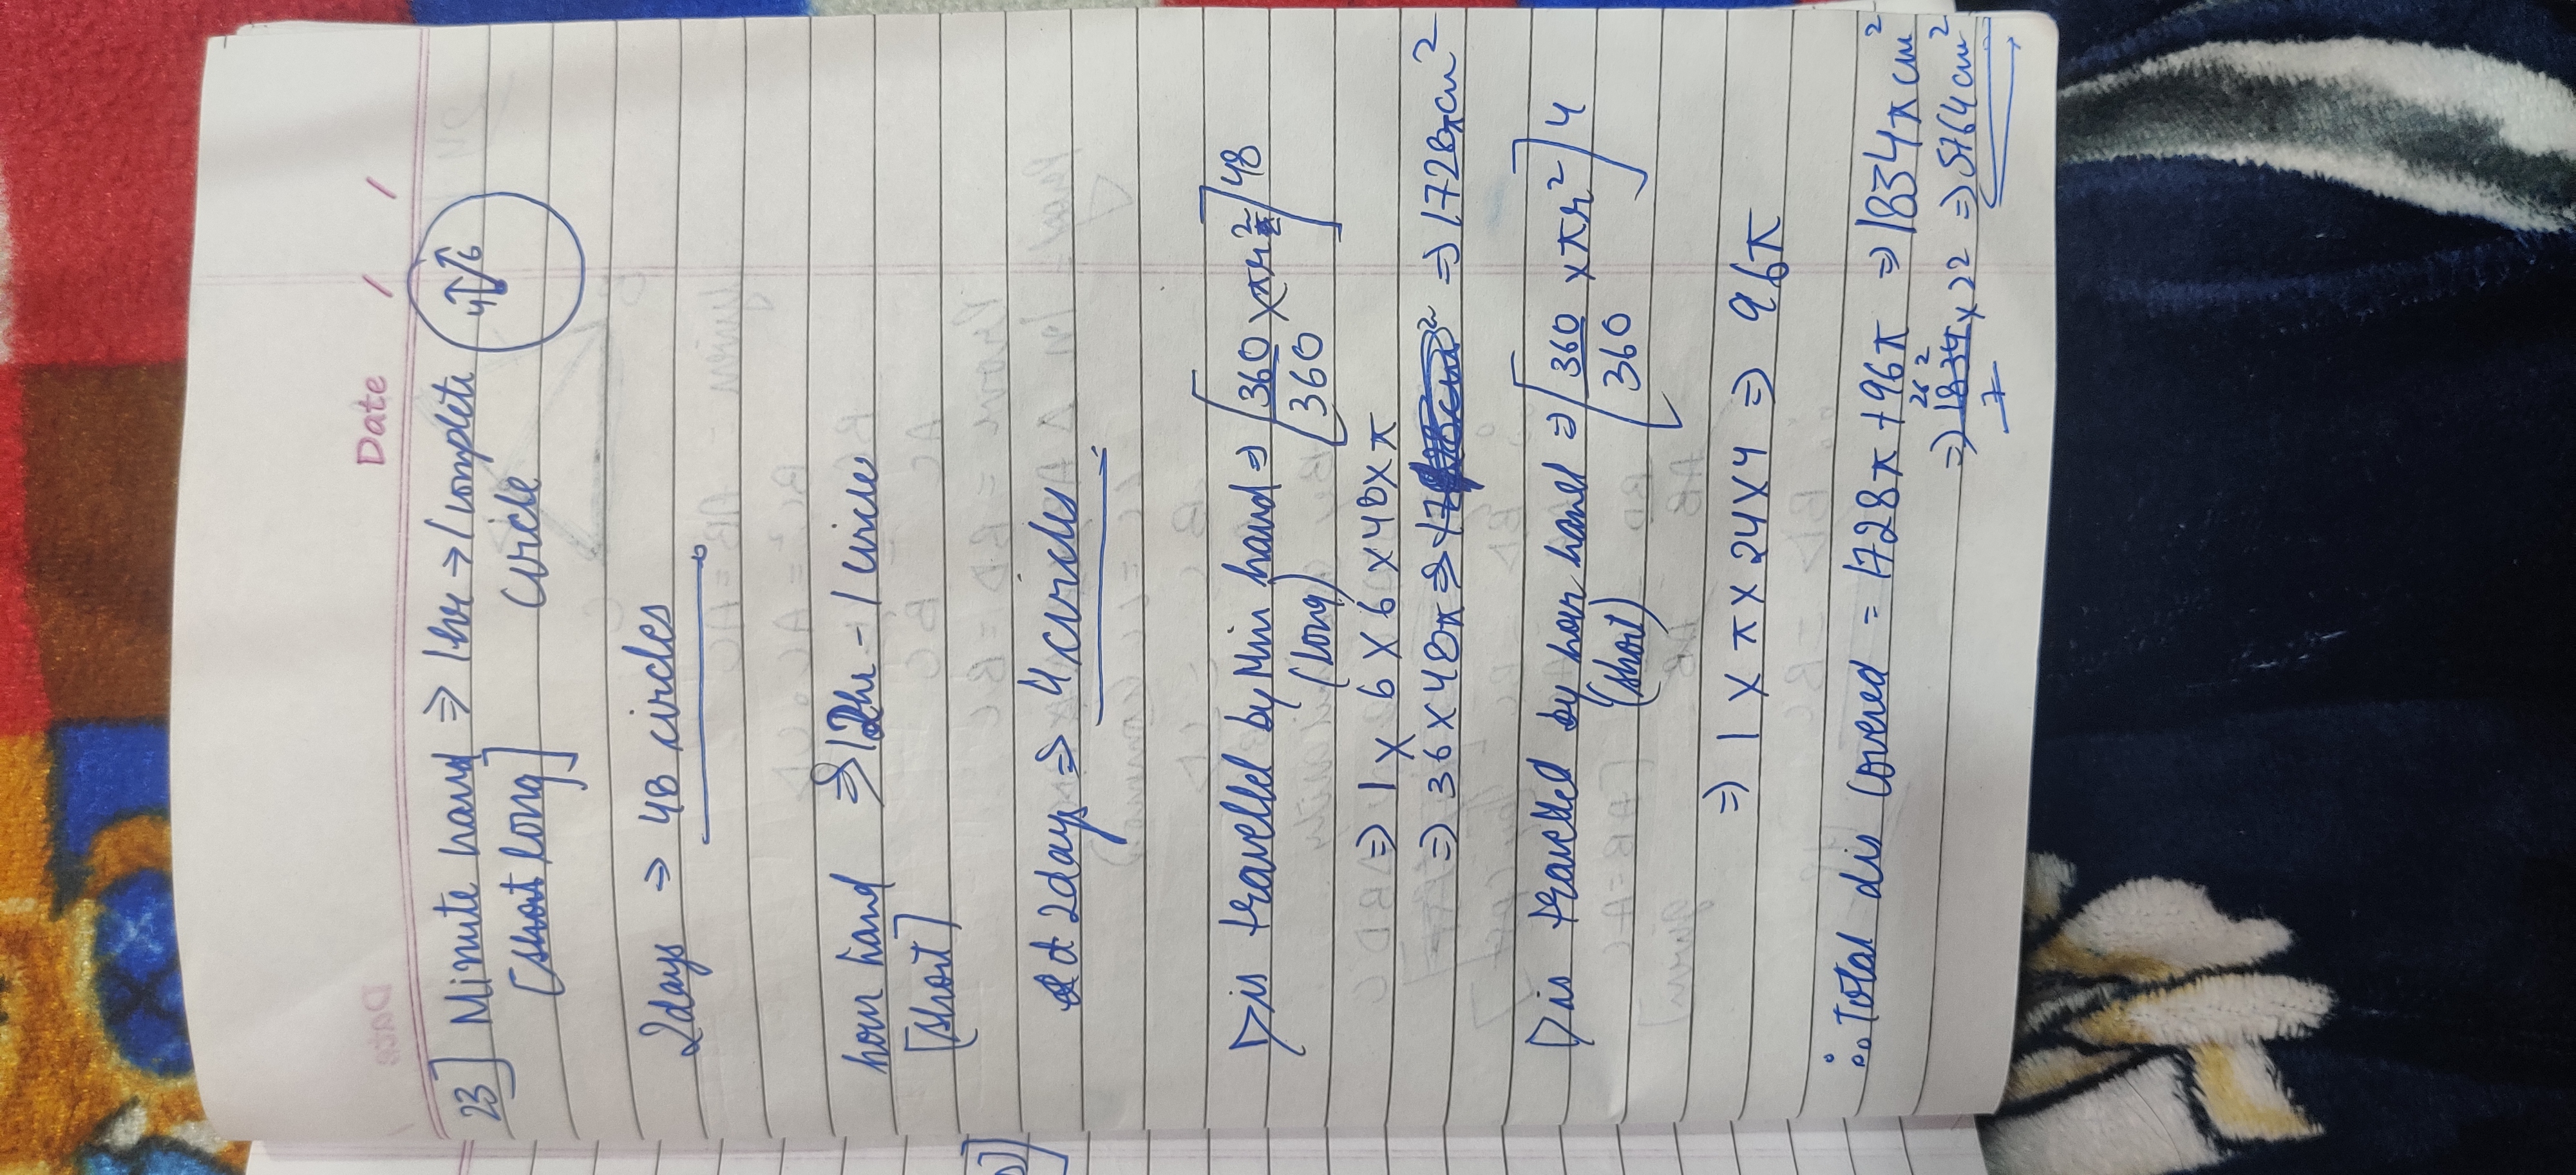 Date / /
23] Minute hand ⇒ 1hr → 1 complete
[short long] circle
4 6
2days ⇒ 48 circles
hour hand ⇒ 12hr - 1 circle
[short]
at 2days ⇒ 4 circles
Dis travelled by Min hand ⇒ [360/360 × πr²] 48
(long)
⇒ 1 × 6 × 6 × 48 × π
⇒ 36 × 48π ⇒ 1728πcm²
Dis travelled by hour hand ⇒ [360/360 × πr²] 4
(short)
⇒ 1 × π × 24 × 4 ⇒ 96π
∴ Total dis covered = 1728π + 96π ⇒ 1834πcm²
262
⇒ 1834/7 × 22 ⇒ 5764cm²